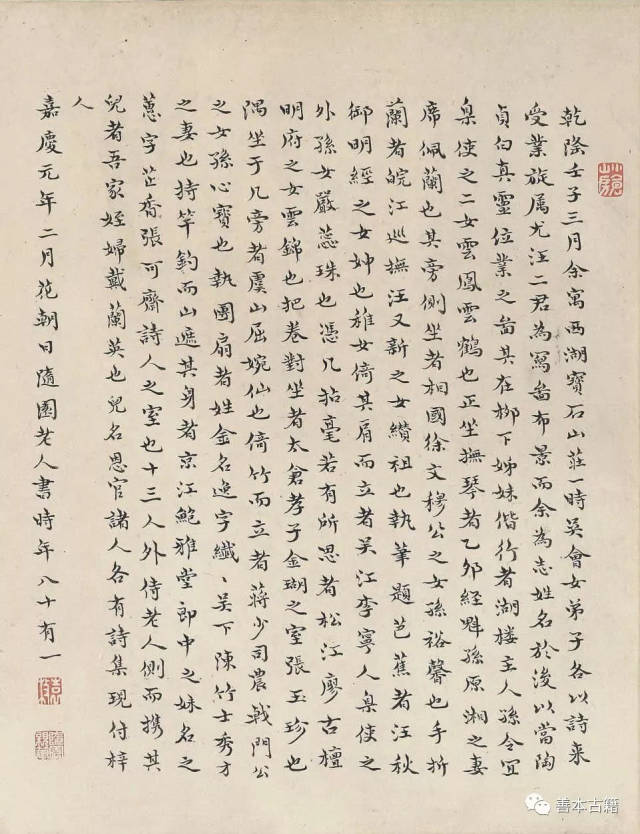 乾隆壬子三月余寓西湖寶石山莊一時吳會女弟子各以詩来
受業旋属尤汪二君為寫啚布景而余為志姓名於後以當陶
貞白真靈位業之啚其在柳下姊妹偕行者湖楼主人孫令宜
臬使之二女雲鳳雲鶴也正坐撫琴者乙卯經魁孫原湘之妻
席佩蘭也其旁側坐者相國徐文穆公之女孫裕馨也手折
蘭者皖江巡撫汪又新之女纘祖也執筆題芭蕉者汪秋
御明經之女妽也稚女倚其肩而立者吳江李寧人臬使之
外孫女嚴蕊珠也憑几拈毫若有所思者松江廖古檀
明府之女雲錦也把卷對坐者太倉孝子金瑚之室張玉珍也
隅坐于几旁者虞山屈婉仙也倚竹而立者蔣少司農戟門公
之女孫心寶也執團扇者姓金名逸字纖、吳下陳竹士秀才
之妻也持竿釣而山遮其身者京江鮑雅堂郎中之妹名之
蕙字芷香張可齋詩人之室也十三人外侍老人側而携其
兒者吾家姪婦戴蘭英也兒名恩官諸人各有詩集現付梓
人
嘉慶元年二月花朝日隨園老人書時年八十有一
善本古籍